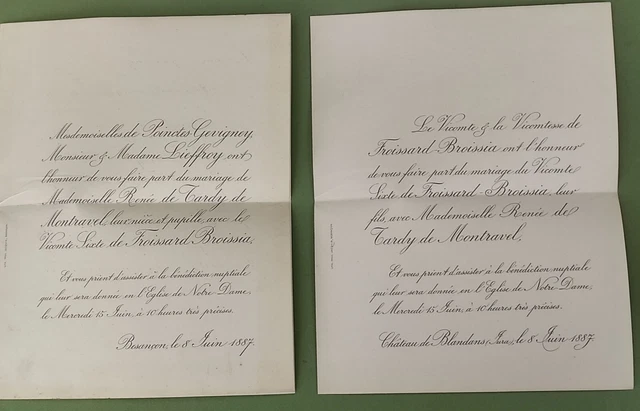 Mesdemoiselles de Poinctes Gevigney,
Monsieur & Madame Lieffroy ont
l'honneur de vous faire part du mariage de
Mademoiselle Renée de Tardy de
Montravel, leur nièce et pupille, avec le
Vicomte Sixte de Froissard Broissia,
Et vous prient d'assister à la bénédiction nuptiale
qui leur sera donnée en l'Eglise de Notre-Dame,
le Mercredi 15 Juin, à 10 heures très précises.
Besançon, le 8 Juin 1887.
Le Vicomte & la Vicomtesse de
Froissard-Broissia ont l'honneur
de vous faire part du mariage du Vicomte
Sixte de Froissard-Broissia, leur
fils, avec Mademoiselle Renée de
Tardy de Montravel,
Et vous prient d'assister à la bénédiction nuptiale
qui leur sera donnée en l'Eglise de Notre-Dame,
le Mercredi 15 Juin, à 10 heures très précises.
Château de Blandans, (Jura), le 8 Juin 1887.